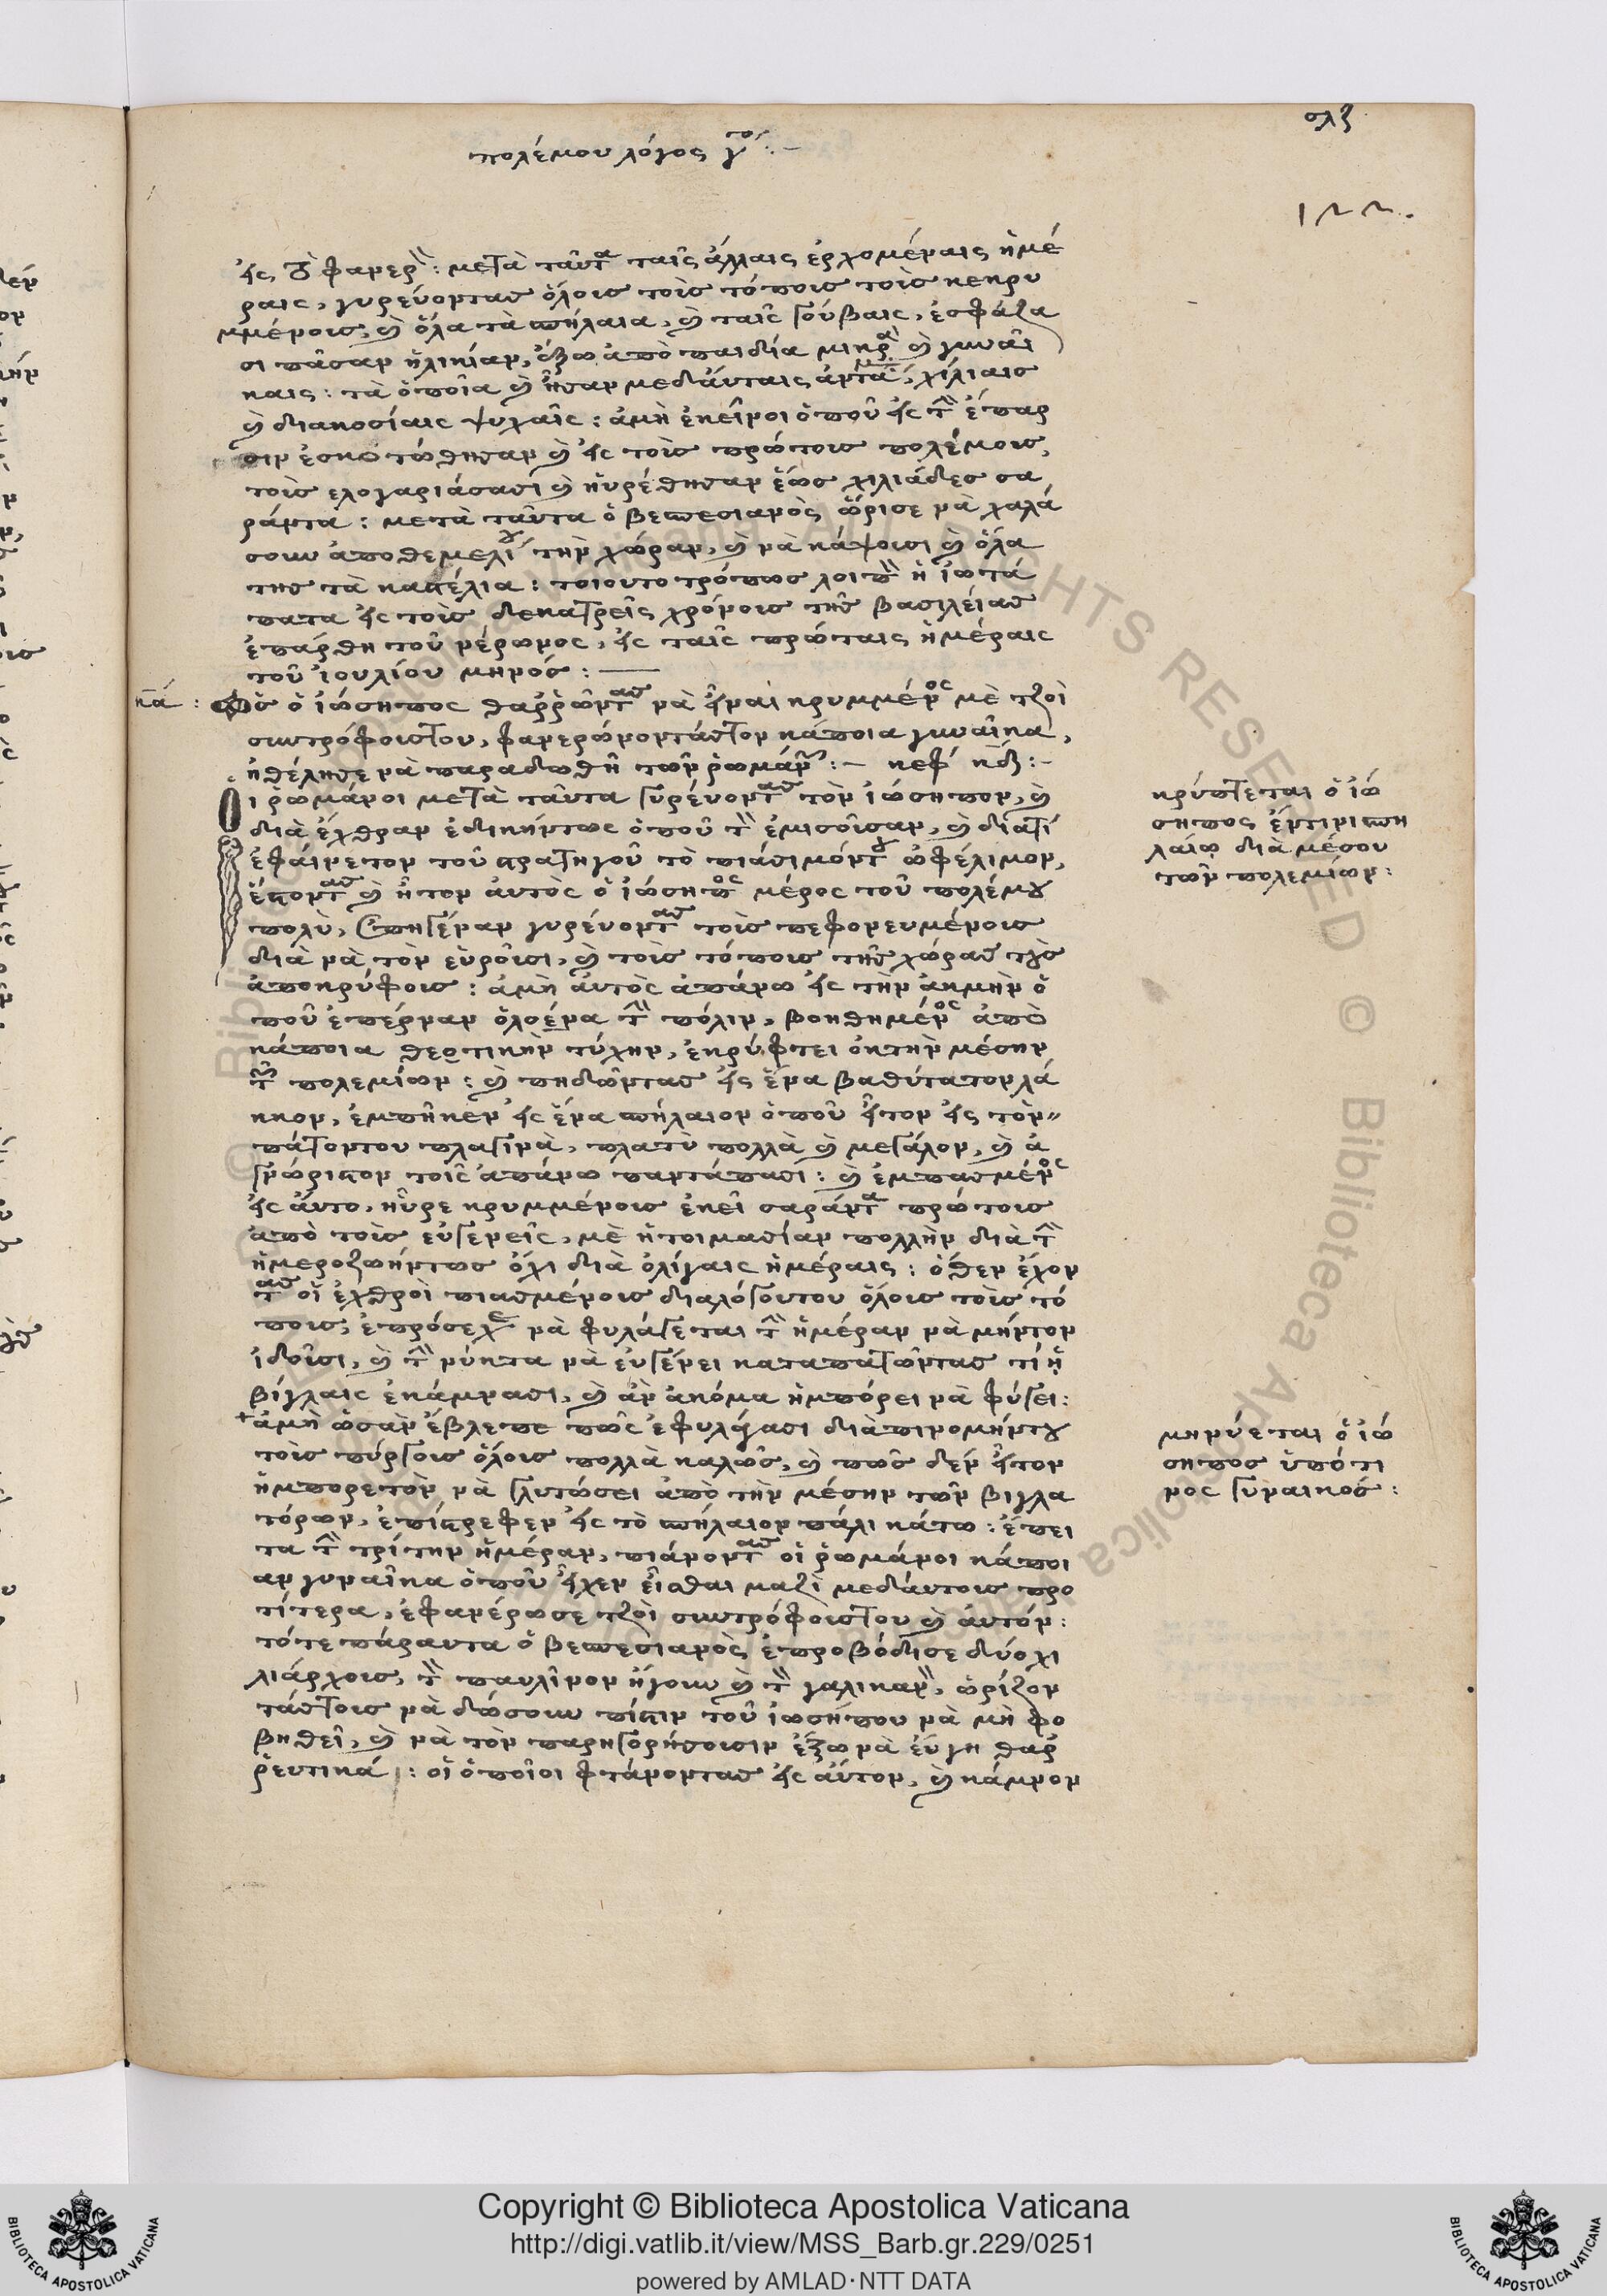 ολζ
πολέμου λόγος γ^(ος) :–
122.
εἰς τὸ φανερὸν : μετὰ ταῦτα ταῖς ἄλλαις ἐρχομέναις ἡμέ
ραις, γυρεύοντας ὅλοις τοῖς τόποις τοῖς κεκρυ
μμένοις, καὶ ὅλα τὰ σπήλαια, καὶ ταῖς γούβαις, ἐσφάζα
σι πᾶσαν ἡλικίαν, ἔξω ἀπὸ παιδία μικρὰ καὶ γυναῖ
καις : τὰ ὁποῖα καὶ ἦσαν μεδιάυταις ἀντάμα, χίλιαις
καὶ διακοσίαις ψυχαῖς : ἀμὴ ἐκεῖνοι ὁποῦ εἰς τὴν ἔπαρ
σιν ἐσκοτώθησαν καὶ εἰς τοῖς πρώτοις πολέμοις,
τοῖς ελογαριάσασι καὶ ηὑρέθησαν ἕως χιλιάδες σα
ράντα : μετὰ ταῦτα ὁ βεσπεσιανὸς ὥρισε νὰ χαλά
σουν ἀποθεμελίου τὴν χώραν, καὶ νὰ κάψοισι καὶ ὅλα
της τὰ καστέλια : τοιουτοτρόπως λοιπὸν ἡ ἰωτά
πατα εἰς τοῖς δεκατρεῖς χρόνοις τῆς βασιλείας
ἐπάρθη τοῦ νέρωνος, εἰς ταῖς πρώταις ἡμέραις
τοῦ ἰουλίου μηνός : —
κα : Πῶς ὁ ἰώσηπος θαῤῥῶντας νὰ εἶναι κρυμμένος μὲ τζοὶ
συντρόφοιςτου, φανερώνοντάςτον κάποια γυναῖκα,
ἠθέλησε νὰ παραδωθῆ τῶν ῥωμάνων :– κεφ κδ :–
Οι ῥωμάνοι μετὰ ταῦτα γυρεύοντας τὸν ἰώσηπον, καὶ
διὰ ἔχθραν ἐδικήντως ὁποῦ τὸν ἐμισοῦσαν, καὶ διατί
ἐφαίνετον τοῦ στρατηγοῦ τὸ πιάσιμόντου ὠφέλιμον,
ἔστοντας καὶ ἦτον ἀυτὸς ὁ ἰώσηπος μέρος τοῦ πολέμου
πολὺ, ἐπηγέναν γυρεύοντας τοῖς πεφονευμένοις
διὰ νὰ τὸν εὑροῦσι, καὶ τοῖς τόποις τῆς χώρας τοὺς
ἀποκρύφοις : ἀμὴ ἀυτὸς ἀπάνω εἰς τὴν ἀκμὴν ὁ
ποῦ ἐπέρναν ὁλοένα τὴν πόλιν, βοηθημένος ἀπὸ
κάποια θεοτικὴν τύχην, ἐκρύφτει ὀκτὴν μέσην
τῶν πολεμίων : καὶ πηδῶντας εἰς ἕνα βαθύτατον λά
κκον, ἐμπῆκεν εἰς ἕνα σπήλαιον ὁποῦ εἶτον εἰς τὸν
πάτοντου πλαγινὰ, πλατὺ πολλὰ καὶ μεγάλον, καὶ ἀ
γνώριστον τοῖς ἀπάνω παντάπασι : καὶ ἐμπασμένος
εἰς ἀυτο, ηὗρε κρυμμένοις ἐκεῖ σαράντα πρώτοις
ἀπὸ τοῖς εὐγενεῖς, μὲ ἡτοιμασίαν πολλὴν διὰ τὴν
ἡμεροζωήντως ὄχι διὰ ὀλίγαις ἡμέραις : ὅθεν ἔχον
τας οἱ ἐχθροὶ πιασμένοις διαλόγουτου ὅλοις τοῖς τό
ποις, ἐπρόσεχε νὰ φυλάγεται τὴν ἡμέραν νὰ μήντον
ἰδοῦσι, καὶ τὴν νύκτα νὰ εὐγένει καταπατῶντας τί
βίγλαις ἐκάμνασι, καὶ ἂν ἀκόμα ἠμπόρει νὰ φύγει :
+ ἀμὴ ὡσὰν ἔβλεπε πῶς ἐφυλάγασι διαπινομήντου
τοῖς πύργοις ὅλοις πολλὰ καλῶς, καὶ πῶς δὲν εἶτον
ἠμπορετὸν νὰ γλυτώσει ἀπὸ τὴν μέσην τῶν βιγλα
τόρων, ἐπίστρεφεν εἰς τὸ σπήλαιον πάλι κάτω : ἔπει
τα τὴν τρίτην ἡμέραν, πιάνοντας οἱ ῥωμάνοι κάποι
αν γυναῖκα ὁποῦ εἶχεν εἶσθαι μαζὶ μεδιάυτοις προ
τίτερα, ἐφανέρωσε τζοὶ συντρόφοιςτου καὶ ἀυτόν :
τότε πάραυτα ὁ βεσπεσιανὸς ἐπροβόδισε δύο χι
λιάρχοις, τὸν παυλῖνον ἤγουν καὶ τὸν γαλικανὸν, ὁρίζον
τάςτοις νὰ δώσουν πίστιν τοῦ ἰωσήπου νὰ μὴ φο
βηθεῖ, καὶ νὰ τὸν παρηγορήσοισιν ἔξω νὰ εὔγη θαῤ
ῥευτικά : οἱ ὁποῖοι φτάνοντας εἰς ἀυτον, καὶ κάμνον
κρύπτεται ὁ ἰώ
σηπος ἔντινι σπη
λαίῳ διὰ μέσου
τῶν πολεμίων :
μηνύεται ὁ ἰώ
σηπος ὑπό τι
νος γυναικός :
Copyright © Biblioteca Apostolica Vaticana
http://digi.vatlib.it/view/MSS_Barb.gr.229/0251
powered by AMLAD·NTT DATA
BIBLIOTECA APOSTOLICA VATICANA
BIBLIOTECA APOSTOLICA VATICANA